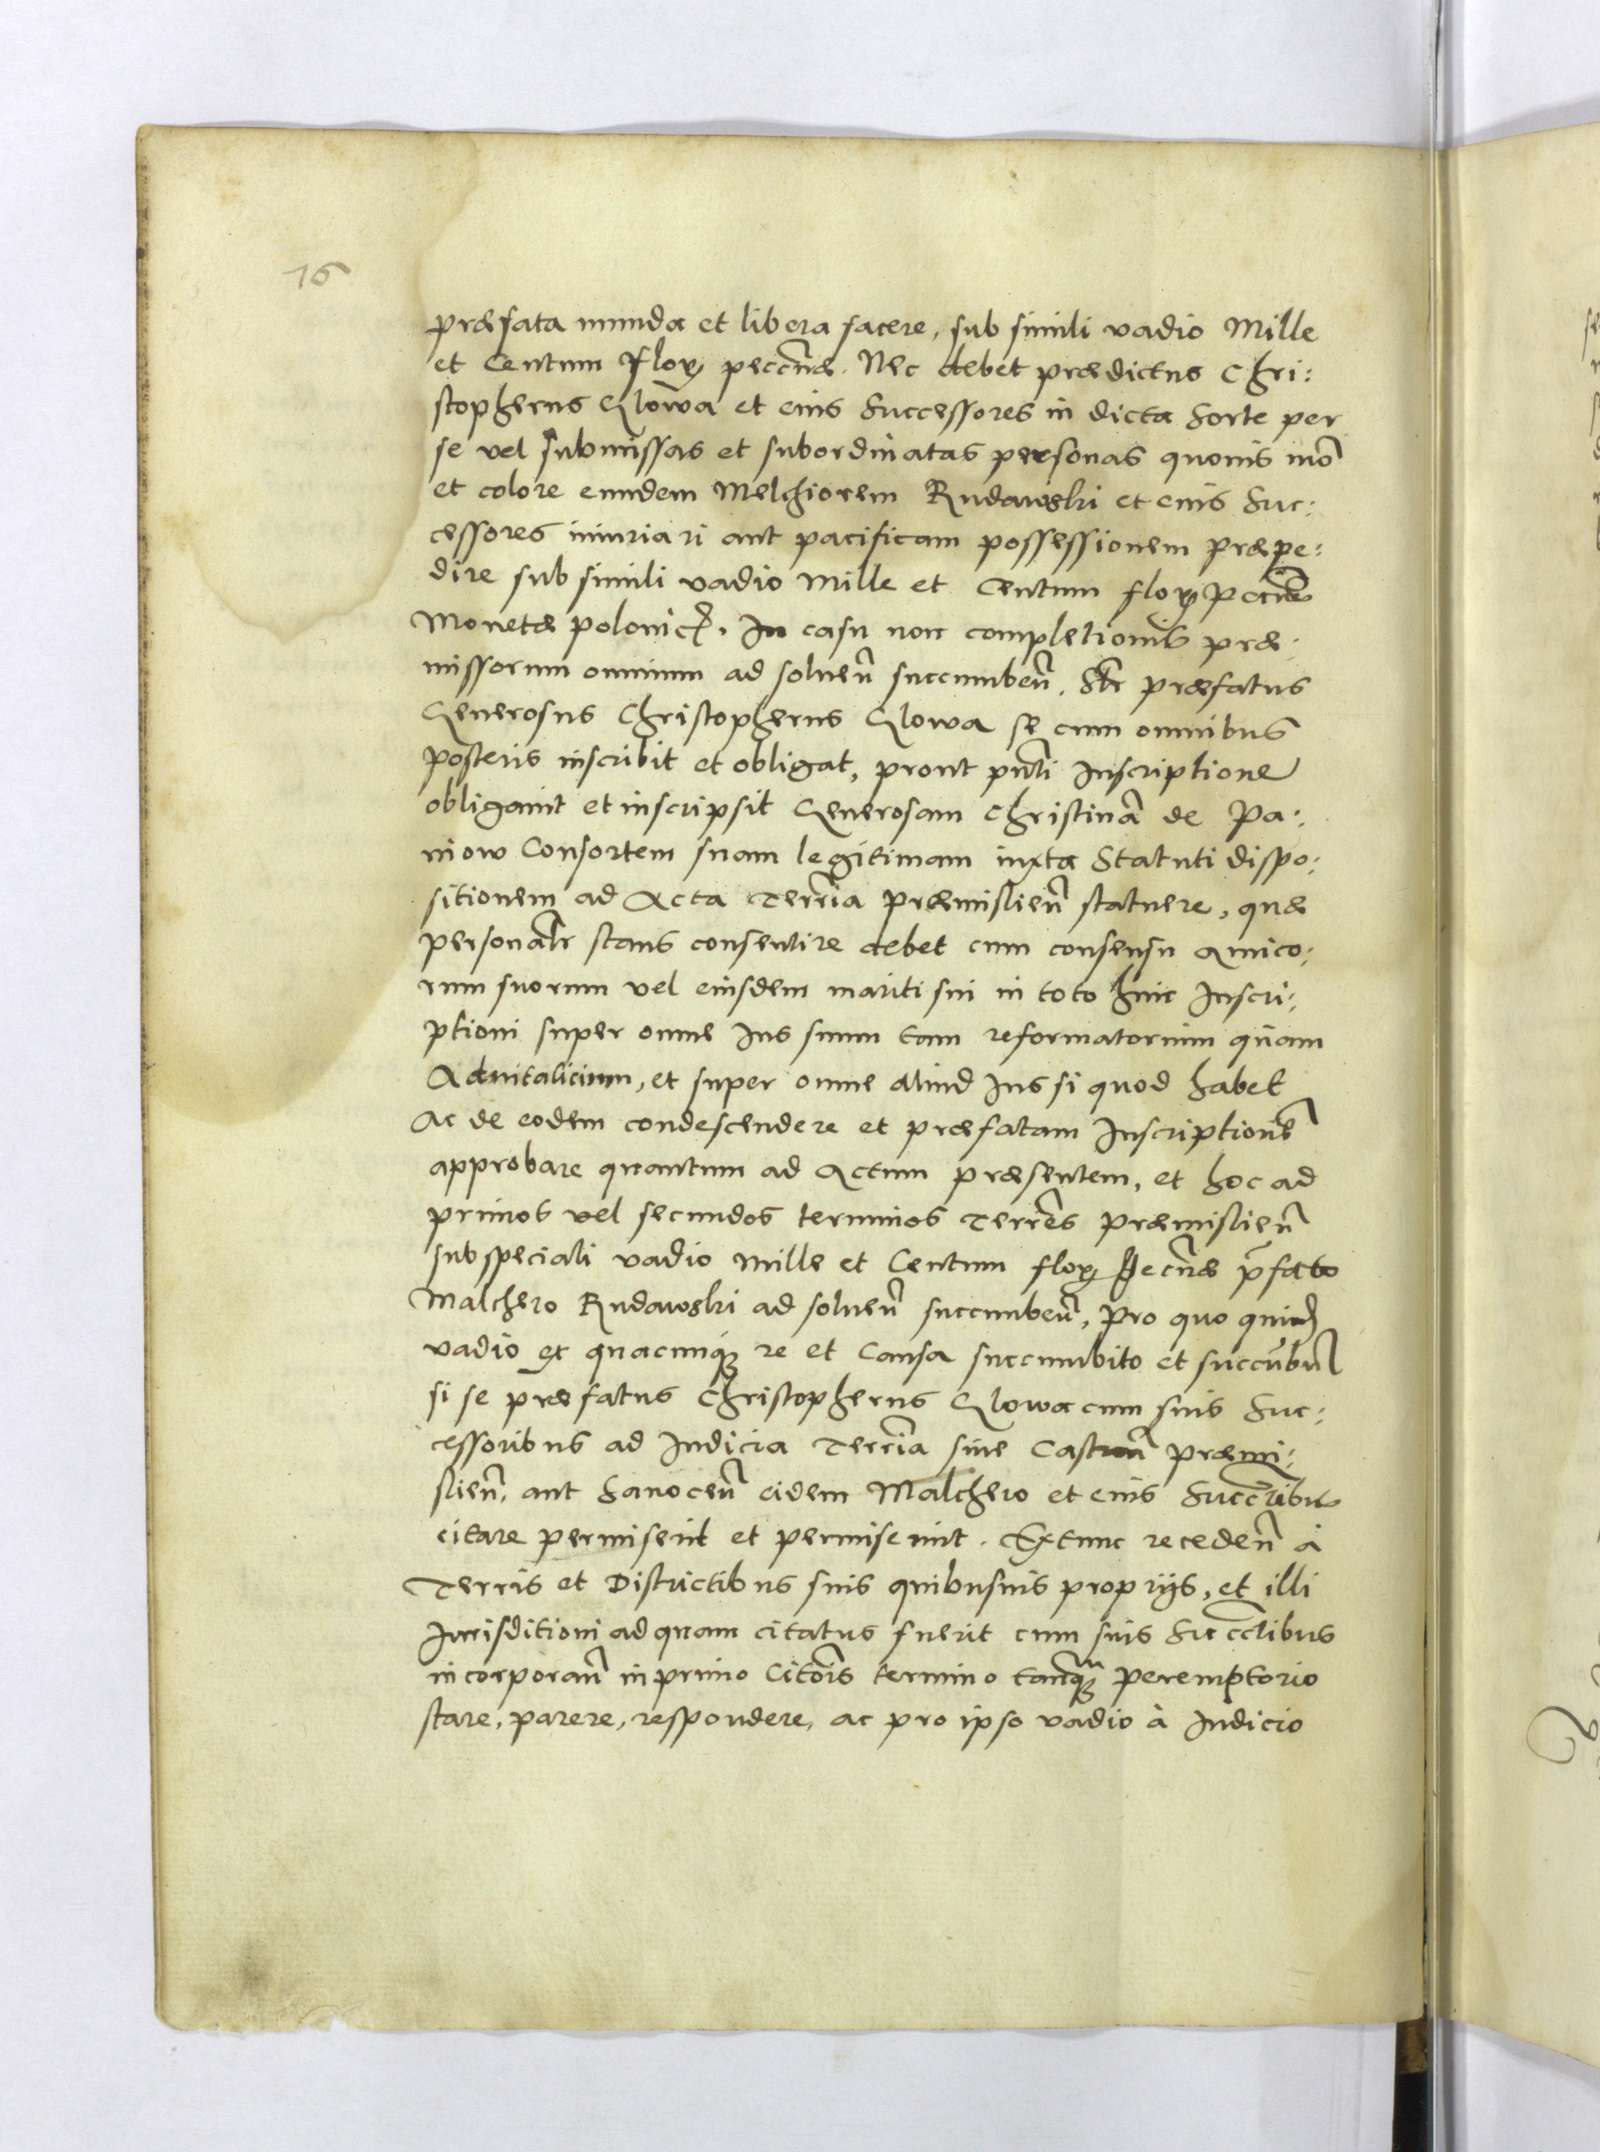 16
præfata munda et libera facere, sub simili vadio Mille
et Centum Flor pecūnæ. Nec debet prædictus Chri:
stopherus Glowa et eius Successores in dicta Sorte per
se vel submissas et subordinatas personas quouis mō
et colore eundem Melchiorem Rudawski et eius Suc:
cessores iniuriari aut pacificam possessionem præpe:
dire sub simili vadio Mille et Centum flor
Monetæ polonic. In casu non completionis præ:
missorum omnium ad soluen̄ succumben̄. præfatus
Generosus Christopherus Glowa se cum omnibus
posteris inscribit et obligat, prout pn̄ti Inscriptione
obligauit et inscripsit Generosam Christinā de Pa:
niow Consortem suam legitimam iuxta Statuti dispo:
sitionem ad Acta Terrīa Præmislien̄ statuere, quæ
personalr stans consentire debet cum consensu Amico:
rum suorum vel eiusdem mariti sui in toto huic Inscri:
ptioni super omne Ius suum tam reformatorium quam
Aduitalicium, et super omne aliud Ius si quod habet
Ac de eodem condescendere et præfatam Inscriptionē
approbare quantum ad Actum præsentem, et hoc ad
primos vel secundos terminos Terrēs præmislien̄
sub speciali vadio Mille et Centum flor Pecūæ p̄fato
Malchero Rudawski ad soluen̄ succumben̄, Pro quo quid
vadio et quacunq re et Causa succumbito et succūbn̄
si se præfatus Christopherus Glowa cum suis Suc:
cessoribus ad Iudicia Terrīa siue Castren̄ Præmi:
slien̄, aut Sanocen̄ eidem Malchero et eius Succribus
citare permiserit et permiserint. Extunc receden̄ à
Terris et Districtibus suis quibusuis proprijs, et illi
Iurisditioni ad quam citatus fuerit cum suis Succībus
incorporan̄ in primo Citōīs termino tanq peremptorio
stare, parere, respondere, ac pro ipso vadio à Iudicio